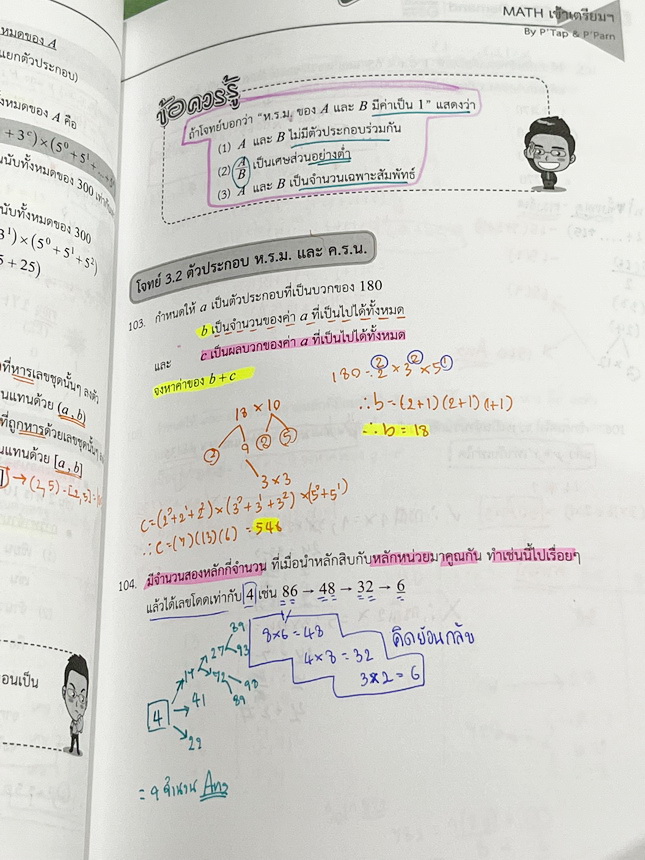 หมดของ A
แยกตัวประกอบ)
ทั้งหมดของ A คือ
+ 3ᶜ) × (5⁰ + 5¹ + ... + 5
นับทั้งหมดของ 300 เท่ากับ
นับทั้งหมดของ 300
3¹) × (5⁰ + 5¹ + 5²)
5 + 25)
ที่หารเลขชุดนั้นๆ ลงตัว
นแทนด้วย (a, b)
ที่ถูกหารด้วยเลขชุดนั้นๆ
นแทนด้วย [a, b]
อนเป็น
MATH เข้าเตรียมฯ
By P'Tap & P'Parn
ข้อควรรู้
ถ้าโจทย์บอกว่า "ห.ร.ม. ของ A และ B มีค่าเป็น 1" แสดงว่า
(1) A และ B ไม่มีตัวประกอบร่วมกัน
(2) A/B เป็นเศษส่วนอย่างต่ำ
(3) A และ B เป็นจำนวนเฉพาะสัมพัทธ์
โจทย์ 3.2 ตัวประกอบ ห.ร.ม. และ ค.ร.น.
103. กำหนดให้ a เป็นตัวประกอบที่เป็นบวกของ 180
b เป็นจำนวนของค่า a ที่เป็นไปได้ทั้งหมด
และ c เป็นผลบวกของค่า a ที่เป็นไปได้ทั้งหมด
จงหาค่าของ b + c
180 = 2² × 3² × 5¹
∴ b = (2+1)(2+1)(1+1)
∴ b = 18
18 × 10
2 9 2 5
3 × 3
C = (2⁰+2¹+2²) × (3⁰+3¹+3²) × (5⁰+5¹)
∴ C = (7)(13)(6) = 546
104. มีจำนวนสองหลักกี่จำนวน ที่เมื่อนำหลักสิบกับหลักหน่วยมาคูณกัน ทำเช่นนี้ไปเรื่อยๆ
แล้วได้เลขโดดเท่ากับ 4 เช่น 86 → 48 → 32 → 6
8×6 = 48
4×8 = 32
3×2 = 6
คิดย้อนกลับ
39
27 93
14 72 98
89
4 41
22
= 9 จำนวน Ans